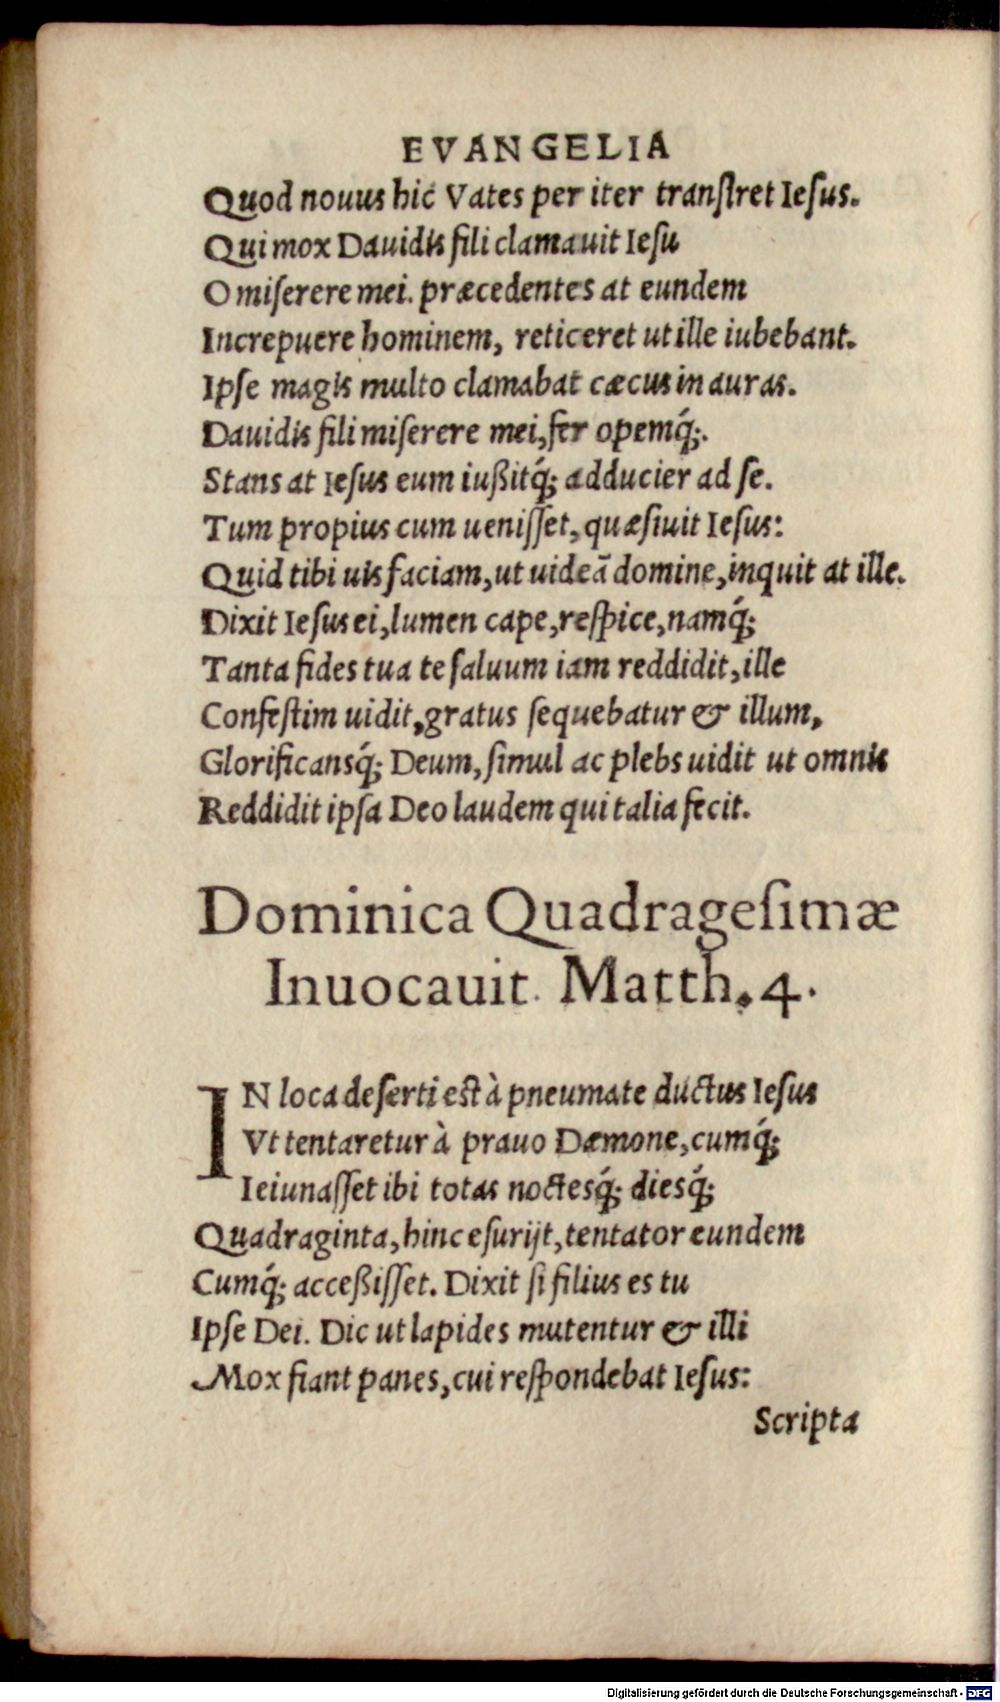 EVANGELIA
Quod nouus hic Vates per iter tranſiret Ieſus.
Qui mox Dauidis fili clamauit Ieſu
O miſerere mei. præcedentes at eundem
Increpuere hominem, reticeret ut ille iubebant.
Ipſe magis multo clamabat cæcus in auras.
Dauidis fili miſerere mei, fer opemq́;.
Stans at Ieſus eum iußitq́; adducier ad ſe.
Tum propius cum ueniſſet, quæſiuit Ieſus:
Quid tibi uis faciam, ut uideā domine, inquit at ille.
Dixit Ieſus ei, lumen cape, reſpice, namq́;
Tanta fides tua te ſaluum iam reddidit, ille
Confeſtim uidit, gratus ſequebatur & illum,
Glorificansq́; Deum, ſimul ac plebs uidit ut omnis
Reddidit ipſa Deo laudem qui talia fecit.
Dominica Quadrageſimæ
Inuocauit. Matth. 4.
IN loca deſerti eſt à pneumate ductus Ieſus
Vt tentaretur à prauo Dæmone, cumq́;
Ieiunaſſet ibi totas noctesq́; diesq́;
Quadraginta, hinc eſurijt, tentator eundem
Cumq́; acceßiſſet. Dixit ſi filius es tu
Ipſe Dei. Dic ut lapides mutentur & illi
Mox fiant panes, cui reſpondebat Ieſus:
Scripta
Digitalisierung gefördert durch die Deutsche Forschungsgemeinschaft - DFG